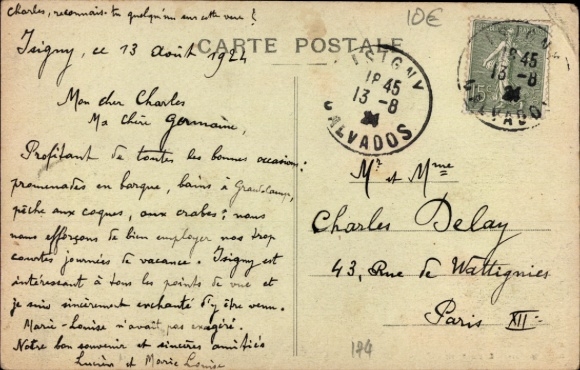 Charles, reconnais-tu quelqu'un sur cette vue ?
10€
Isigny, ce 13 août 1924
CARTE POSTALE
Mon cher Charles
Ma chère Germaine,
Profitant de toutes les bonnes occasions:
promenades en barque, bains à Grandcamp,
pêche aux coques, aux crabes; nous
nous efforçons de bien employer nos trop
courtes journées de vacance. Isigny est
intéressant à tous les points de vue et
je suis sincèrement enchanté d'y être venu.
Marie-Louise n'avait pas exagéré.
Notre bon souvenir et sincères amitiés
Lucien et Marie Louise
ISIGNY
18 45
13 -8
24
CALVADOS
ISIGNY
18 45
13 -8
24
CALVADOS
15c
Mr et Mme
Charles Delay
43, Rue de Wattignies
Paris XII
174